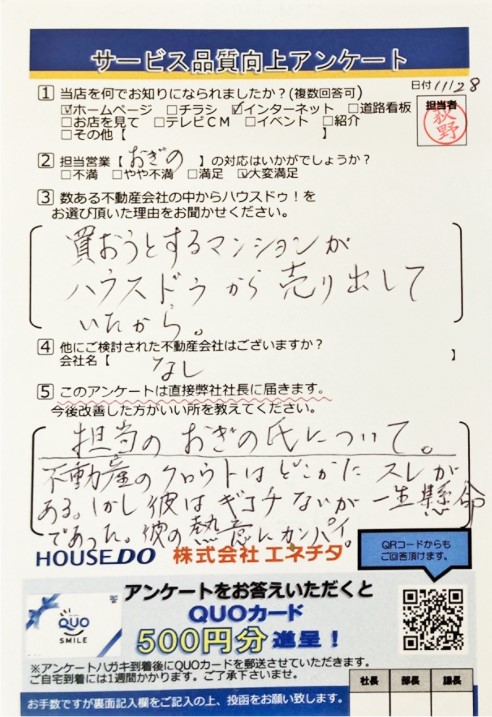 サービス品質向上アンケート
日付 11/28
1 当店を何でお知りになられましたか？(複数回答可)
☑ホームページ □チラシ ☑インターネット □道路看板
□お店を見て □テレビCM □イベント □紹介
□その他【 】
担当者
荻野
2 担当営業【 おぎの 】の対応はいかがでしょうか？
□不満 □やや不満 □満足 ☑大変満足
3 数ある不動産会社の中からハウスドゥ！を
お選び頂いた理由をお聞かせください。
買おうとするマンションが
ハウスドゥから売り出して
いたから。
4 他にご検討された不動産会社はございますか？
会社名【 なし 】
5 このアンケートは直接弊社社長に届きます。
今後改善した方がいい所を教えてください。
担当のおぎの氏について。
不動産のクロウトはどこかにスレが
ある。しかし彼はギコチないが一生懸命
であった。彼の熱意にカンパイ。
HOUSE DO 株式会社 エネチタ
QRコードからも
ご回答頂けます。
アンケートをお答えいただくと
QUOカード
500円分 進呈！
QUO
SMILE
※アンケートハガキ到着後にQUOカードを郵送させていただきます。
ご自宅到着には1週間かかります。ご了承下さいませ。
社長 部長 課長
お手数ですが裏面記入欄をご記入の上、投函をお願い致します。